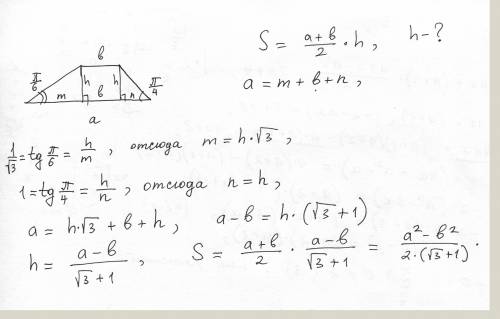 S = (a+b)/2 · h, h - ?
b
π/6 h h π/4
m b n
a
a = m + b + n,
1/√3 = tg π/6 = h/m, отсюда m = h·√3,
1 = tg π/4 = h/n, отсюда n = h,
a = h·√3 + b + h, a-b = h·(√3+1)
h = (a-b)/(√3+1), S = (a+b)/2 · (a-b)/(√3+1) = (a²-b²)/(2·(√3+1)).